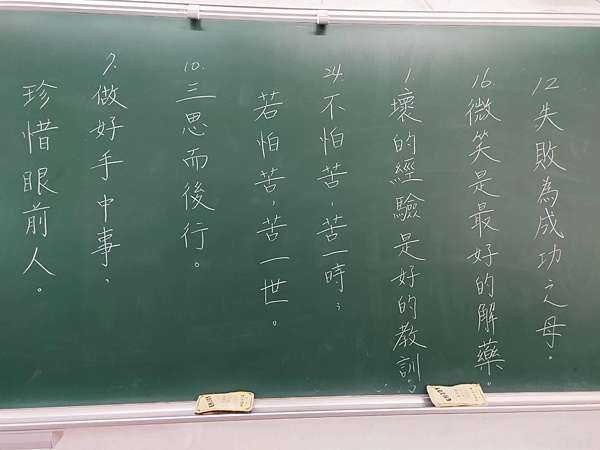 12.失敗為成功之母。
16.微笑是最好的解藥。
1.壞的經驗是好的教訓。
24.不怕苦,苦一時;
若怕苦,苦一世。
10.三思而後行。
7.做好手中事,
珍惜眼前人。